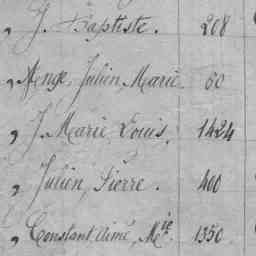 , J. Baptiste. 208
, Menge, Julien Marie. 60
, J. Marie Louis. 1424
, Julien, Pierre. 400
, Constant Aimé, Mie. 1350